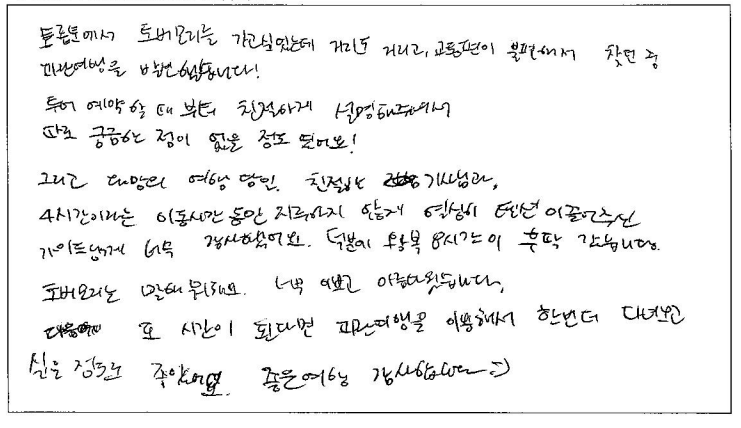 토론토에서 토버모리를 가고싶었는데 거리도 거리고, 교통편이 불편해서 찾던 중
파란여행을 발견했습니다!
투어 예약할 때 부터 친절하게 설명해주셔서
따로 궁금하는 점이 없을 정도 였어요!
그리고 대망의 여행 당일. 친절한 기사님과,
4시간이라는 이동시간 동안 지루하지 않게 열심히 텐션 이끌어주신
가이드님께 너무 감사했어요. 덕분에 왕복 8시간이 후딱 갔습니다.
토버모리는 말해 뭐해요. 너무 예쁘고 아름다웠습니다.
또 시간이 된다면 파란여행을 이용해서 한번 더 다녀오고
싶을 정도로 좋았어요. 좋은여행 감사합니다 :)